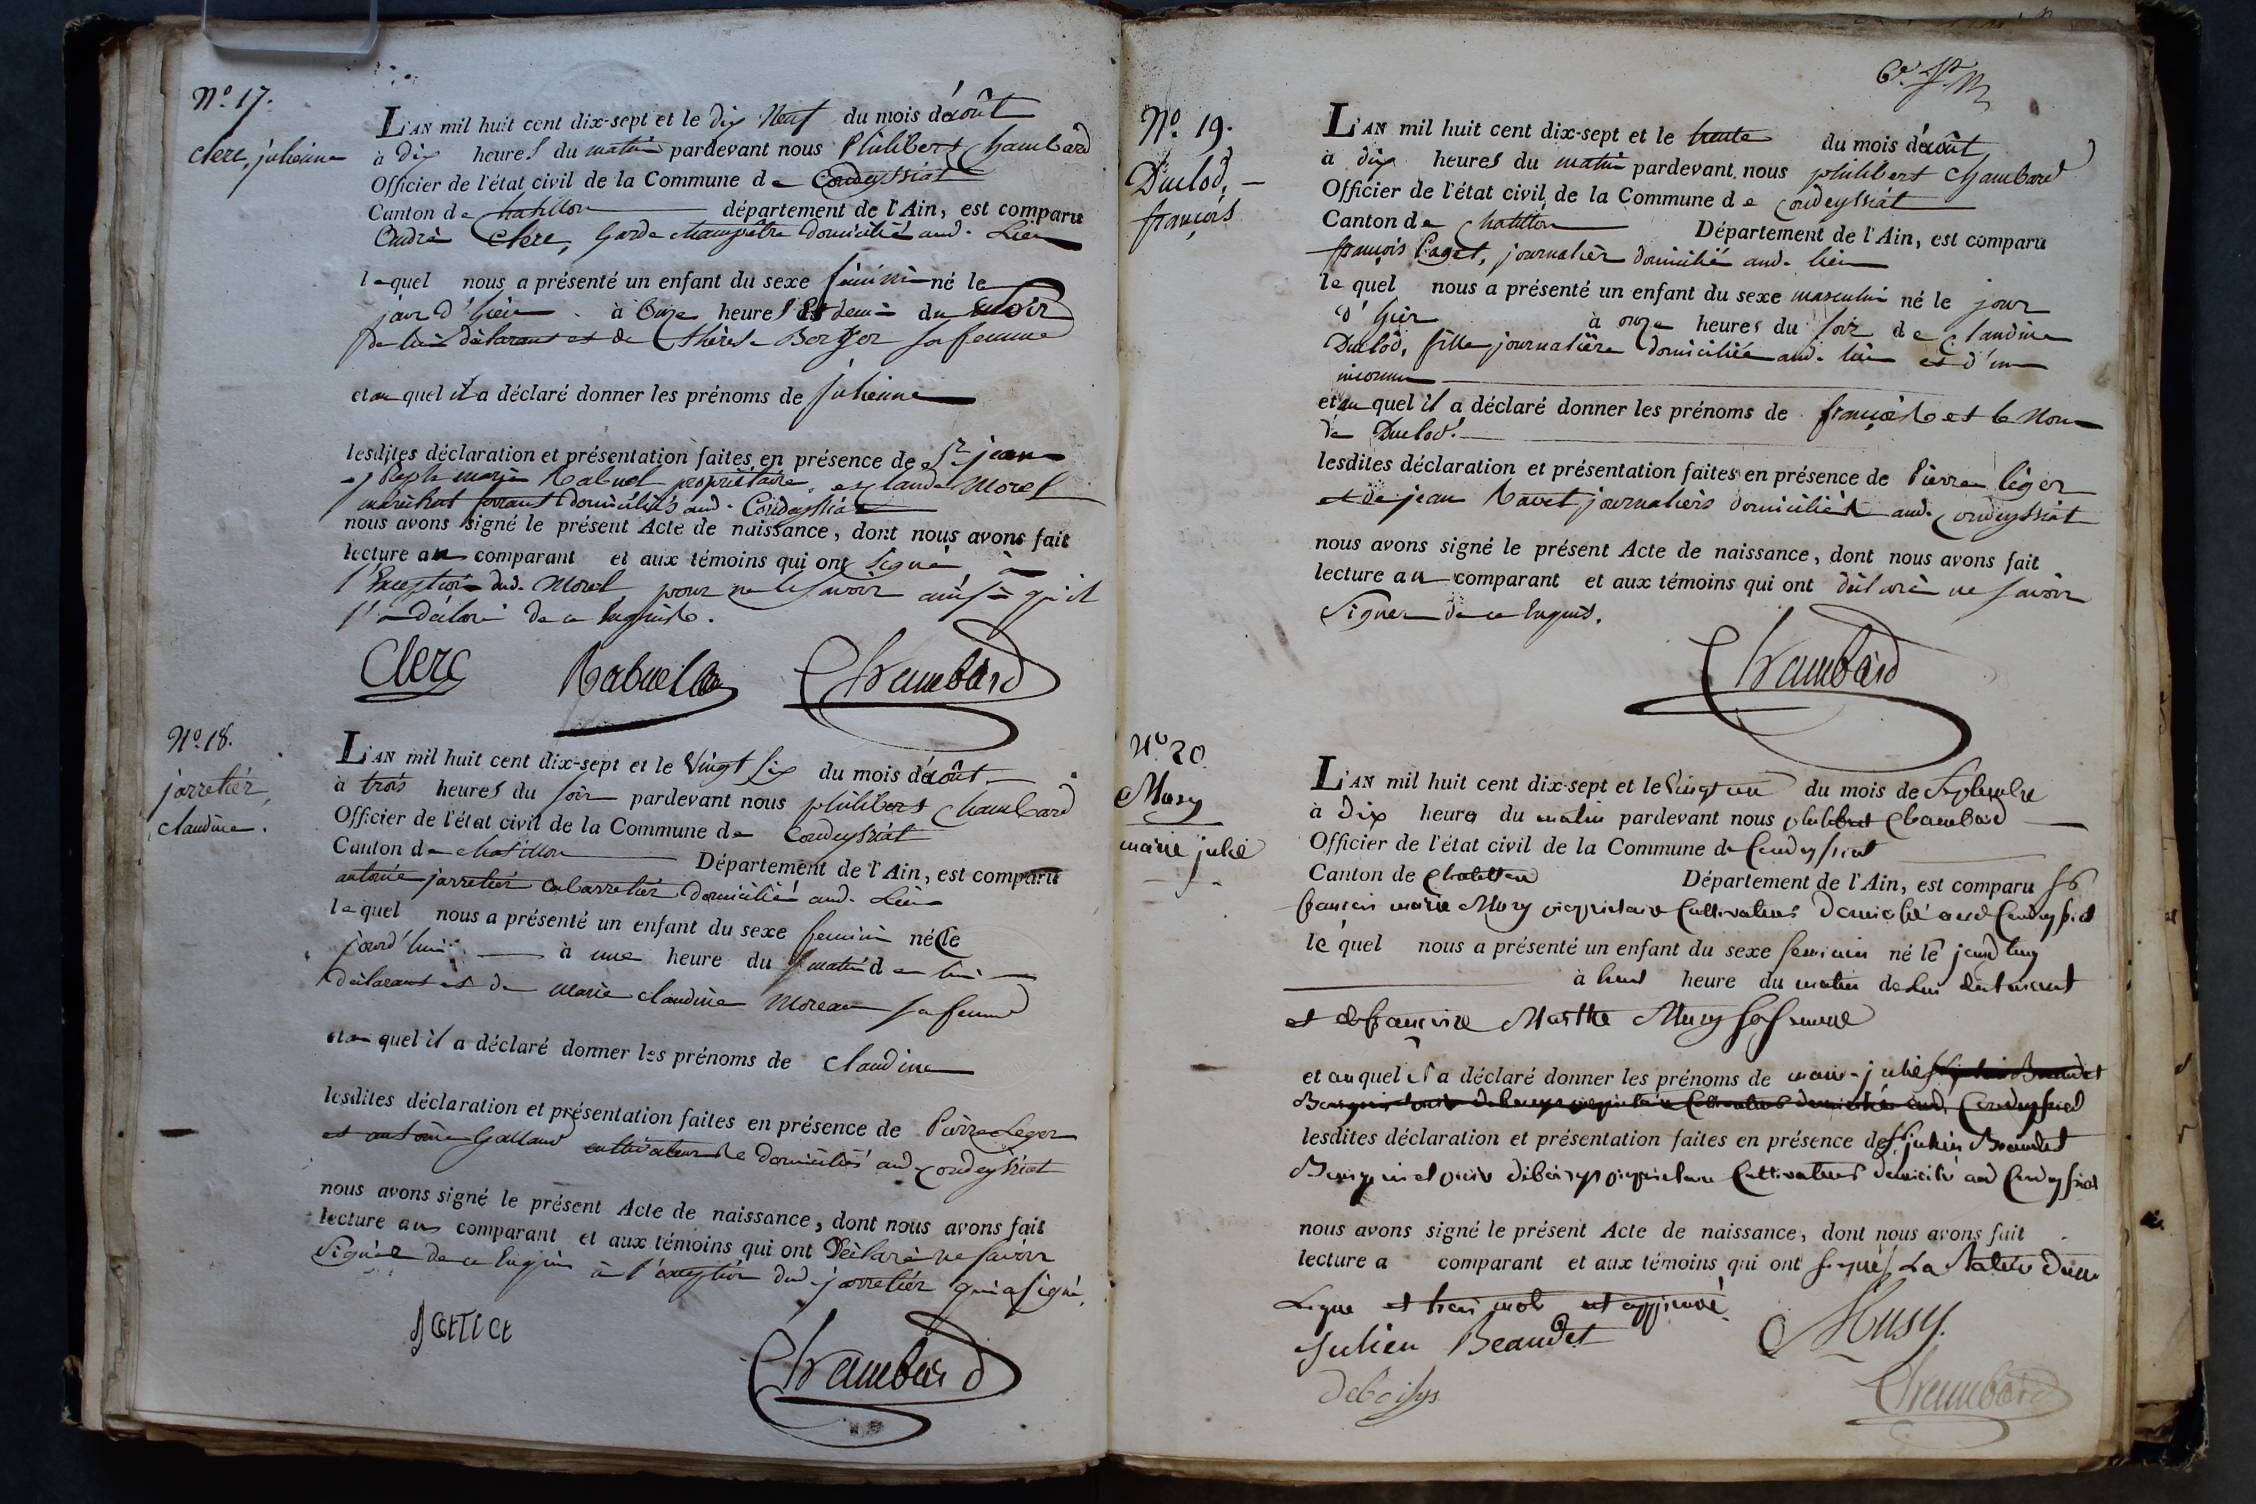 N.o 17.
Clerc, julienne
L'AN mil huit cent dix-sept et le dix Neuf du mois d'août
à dix heures du matin pardevant nous Philibert Chambard
Officier de l'état civil de la Commune de Condeyssiat
Canton de Chatillon département de l'Ain, est comparu
André Clerc, Garde champetre domicilié aud. Lieu
lequel nous a présenté un enfant du sexe féminin né le
jour d'hier à Onze heures et demie du soir
de lui déclarant et de Thérèse Borjon sa femme
et au quel il a déclaré donner les prénoms de julienne
lesdites déclaration et présentation faites en présence de Sr jean
joseph marie Rabuel propriétaire, et Claude Morel
maréchal ferrant domiciliés aud. Condeyssiat
nous avons signé le présent Acte de naissance, dont nous avons fait
lecture au comparant et aux témoins qui ont signé à
l'Exception dud. Morel pour ne le savoir ainsi qu'il
l'a déclaré de ce enquis.
Clerc Rabuel Chambard
N.o 18.
jarretier,
claudine.
L'AN mil huit cent dix-sept et le Vingt six du mois d'août
à trois heures du soir pardevant nous philibert Chambard
Officier de l'état civil de la Commune de Condeyssiat
Canton de chatillon Département de l'Ain, est comparu
antoine jarretier cabarretier domicilié aud. Lieu
lequel nous a présenté un enfant du sexe feminin né le
jourd'hui à une heure du matin de lui
déclarant et de marie claudine Moreau sa femme
et au quel il a déclaré donner les prénoms de claudine
lesdites déclaration et présentation faites en présence de Pierre Leger
et antoine Galland cultivateurs domiciliés aud. Condeyssiat
nous avons signé le présent Acte de naissance, dont nous avons fait
lecture au comparant et aux témoins qui ont Déclaré ne savoir
Signer de ce enquis à l'exception dud. jarretier qui a signé.
Chambard
N.o 19.
Duclod,
françois
L'AN mil huit cent dix-sept et le trente du mois d'août
à dix heures du matin pardevant nous philibert Chambard
Officier de l'état civil de la Commune de Condeyssiat
Canton de Chatillon Département de l'Ain, est comparu
françois Paget, journalier domicilié aud. lieu
le quel nous a présenté un enfant du sexe masculin né le jour
d'hier à onze heures du soir de Claudine
Duclod, fille journalière domiciliée aud. lieu et d'un
inconnu
et au quel il a déclaré donner les prénoms de françois et le Nom
de Duclod.
lesdites déclaration et présentation faites en présence de Pierre léger
et de jean Ravet journaliers domiciliés aud. Condeyssiat
nous avons signé le présent Acte de naissance, dont nous avons fait
lecture au comparant et aux témoins qui ont déclaré ne savoir
Signer de ce Enquis.
Chambard
N.o 20
Musy
marie julie
L'AN mil huit cent dix-sept et le Vingt un du mois de Septembre
à dix heure du matin pardevant nous philibert Chambard
Officier de l'état civil de la Commune de Condeyssiat
Canton de Chatillon Département de l'Ain, est comparu Sr
francois marie Musy propriétaire Cultivateur domicilié aud Condeyssiat
le quel nous a présenté un enfant du sexe feminin né le jourdhuy
à huit heure du matin de lui déclarant
et de françoise Marthe Musy sa femme
et au quel il a déclaré donner les prénoms de marie julie
lesdites déclaration et présentation faites en présence de Sr julien Beaudet
cultivateurs domicilié aud Condeyssiat
nous avons signé le présent Acte de naissance, dont nous avons fait
lecture a comparant et aux témoins qui ont signés La Rature d'une
Ligne et trois mots est approuvé
Julien Beaudet Musy
Deboisys Chambard